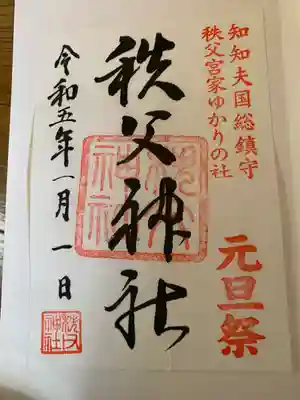 知知夫国総鎮守
秩父宮家ゆかりの社
元旦祭
秩父神社
令和五年一月一日
秩父神社